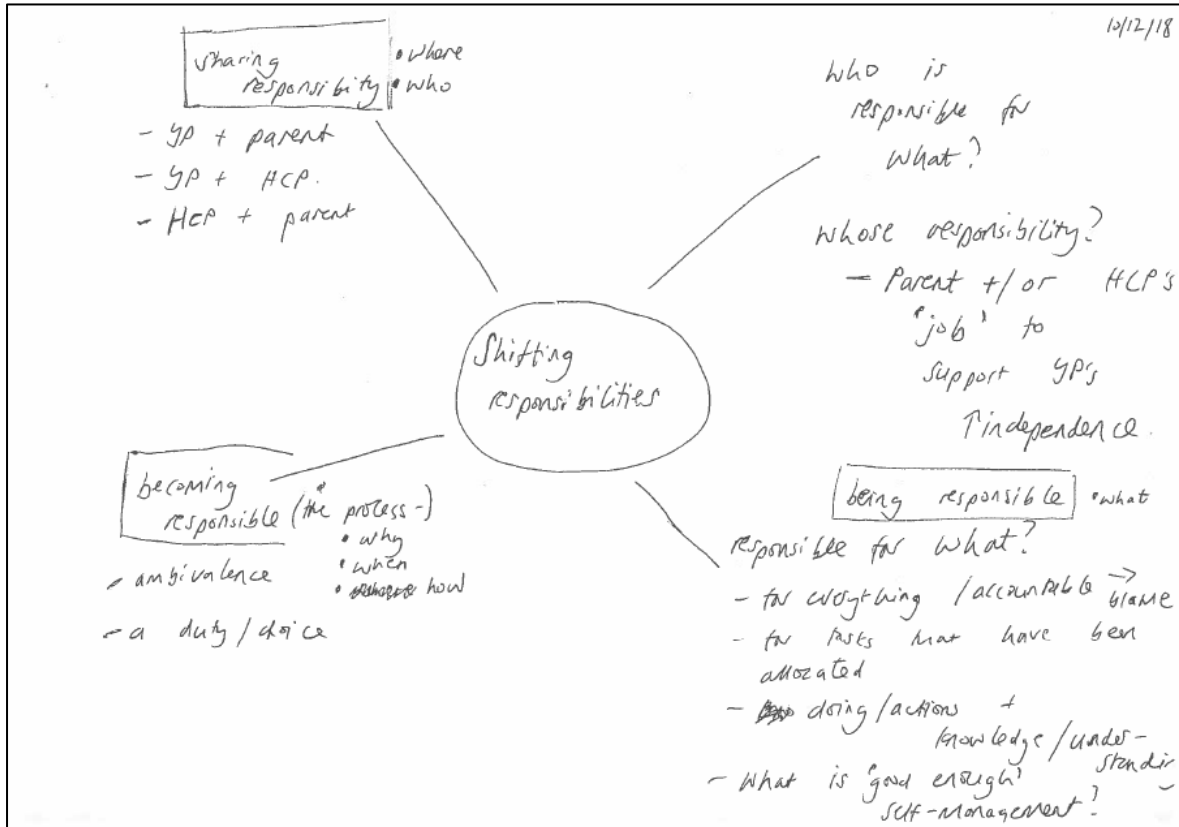 10/12/18
sharing
responsibity
• where
• who
- YP + parent
- YP + HCP.
- HCP + parent
who is
responsible for
what?
whose responsibility?
- Parent +/or HCP's
'job' to
support YP's
↑independence.
Shifting
responsibilities
becoming
responsible (the process -)
• why
• when
• how
- ambivalence
- a duty/choice
being responsible • what
responsible for what?
- for everything /accountable → blame
- for tasks that have been
allocated
- doing/actions +
knowledge/under-
standing
- What is 'good enough'
self-management?